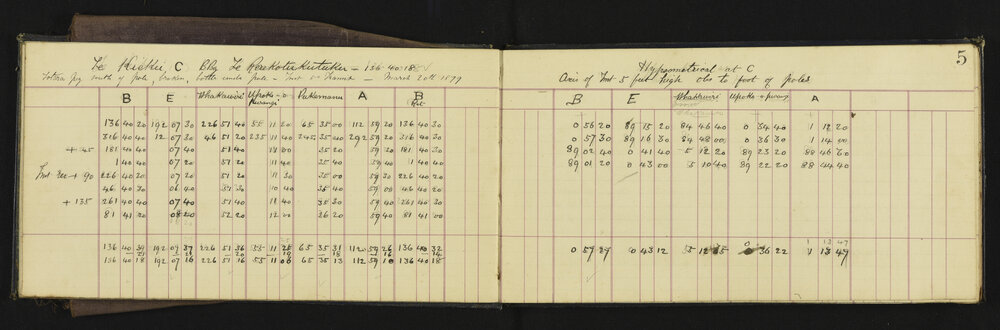 Te Kiekie C Bdy Te Raekotukutuku — 136·40·18
south of pole, broken, bottle under pole — Inst 5in Transit — March 20th 1879
B E Whatawiri Upoko-o Purangi Pukemanu A B Ret
136 40 20 192 07 30 226 51 40 55 11 20 65 35 00 112 59 20 136 40 30
316 40 40 12 07 30 46 51 20 235 11 40 245 35 40 292 59 20 316 40 30
+45 181 40 40 07 40 51 40 12 00 35 20 59 20 181 40 30
1 40 40 07 20 51 20 11 40 35 40 59 40 1 40 40
+ 90 226 40 30 07 20 51 20 11 30 35 00 59 30 226 40 20
46 40 30 06 40 51 30 10 40 35 40 59 00 46 40 20
+ 135 261 40 40 07 40 51 40 11 40 35 30 59 40 261 40 30
81 41 20 08 20 52 20 12 20 36 20 59 40 81 41 00
136 40 39 192 07 37 226 51 36 55 11 25 65 35 31 112 59 26 136 40 32
136 40 18 192 07 16 226 51 16 55 11 06 65 35 13 112 59 10 136 40 18
5
Hypsometrical at C
Axis of Inst 5 feet high obs to foot of poles
B E Whatawiri Upoko-o-purangi A
0 56 20 89 15 20 84 46 40 0 34 40 1 12 20
0 57 30 89 16 30 84 48 00 0 36 30 1 14 00
89 02 40 0 41 40 5 12 20 89 23 20 88 46 20
89 01 20 0 43 00 5 10 40 89 22 20 88 44 40
1 13 47
0 57 27 0 43 12 5 12 0 36 22 1 13 47